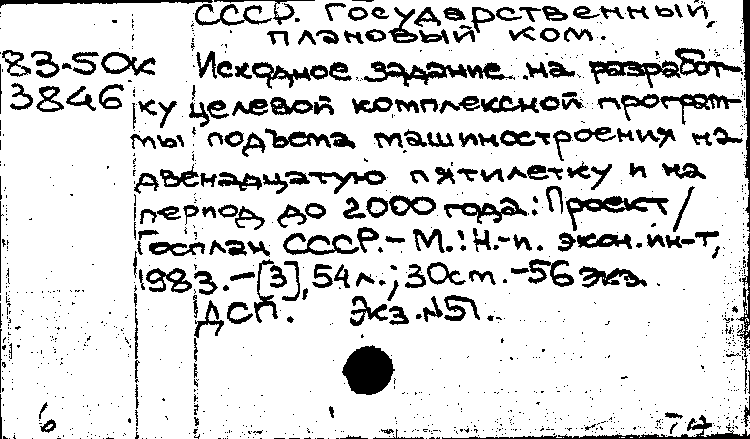 СССР. Государственный
плановый ком.
83-50к Исходное задание на разработ-
3846 ку целевой комплексной програм-
мы подъема машиностроения на
двенадцатую пятилетку и на
период до 2000 года: Проект /
Госплан СССР.- М.: Н.-и. экон. ин-т,
1983.-[3], 54л.; 30см.-56 экз.
ДСП. Экз.№51.
6